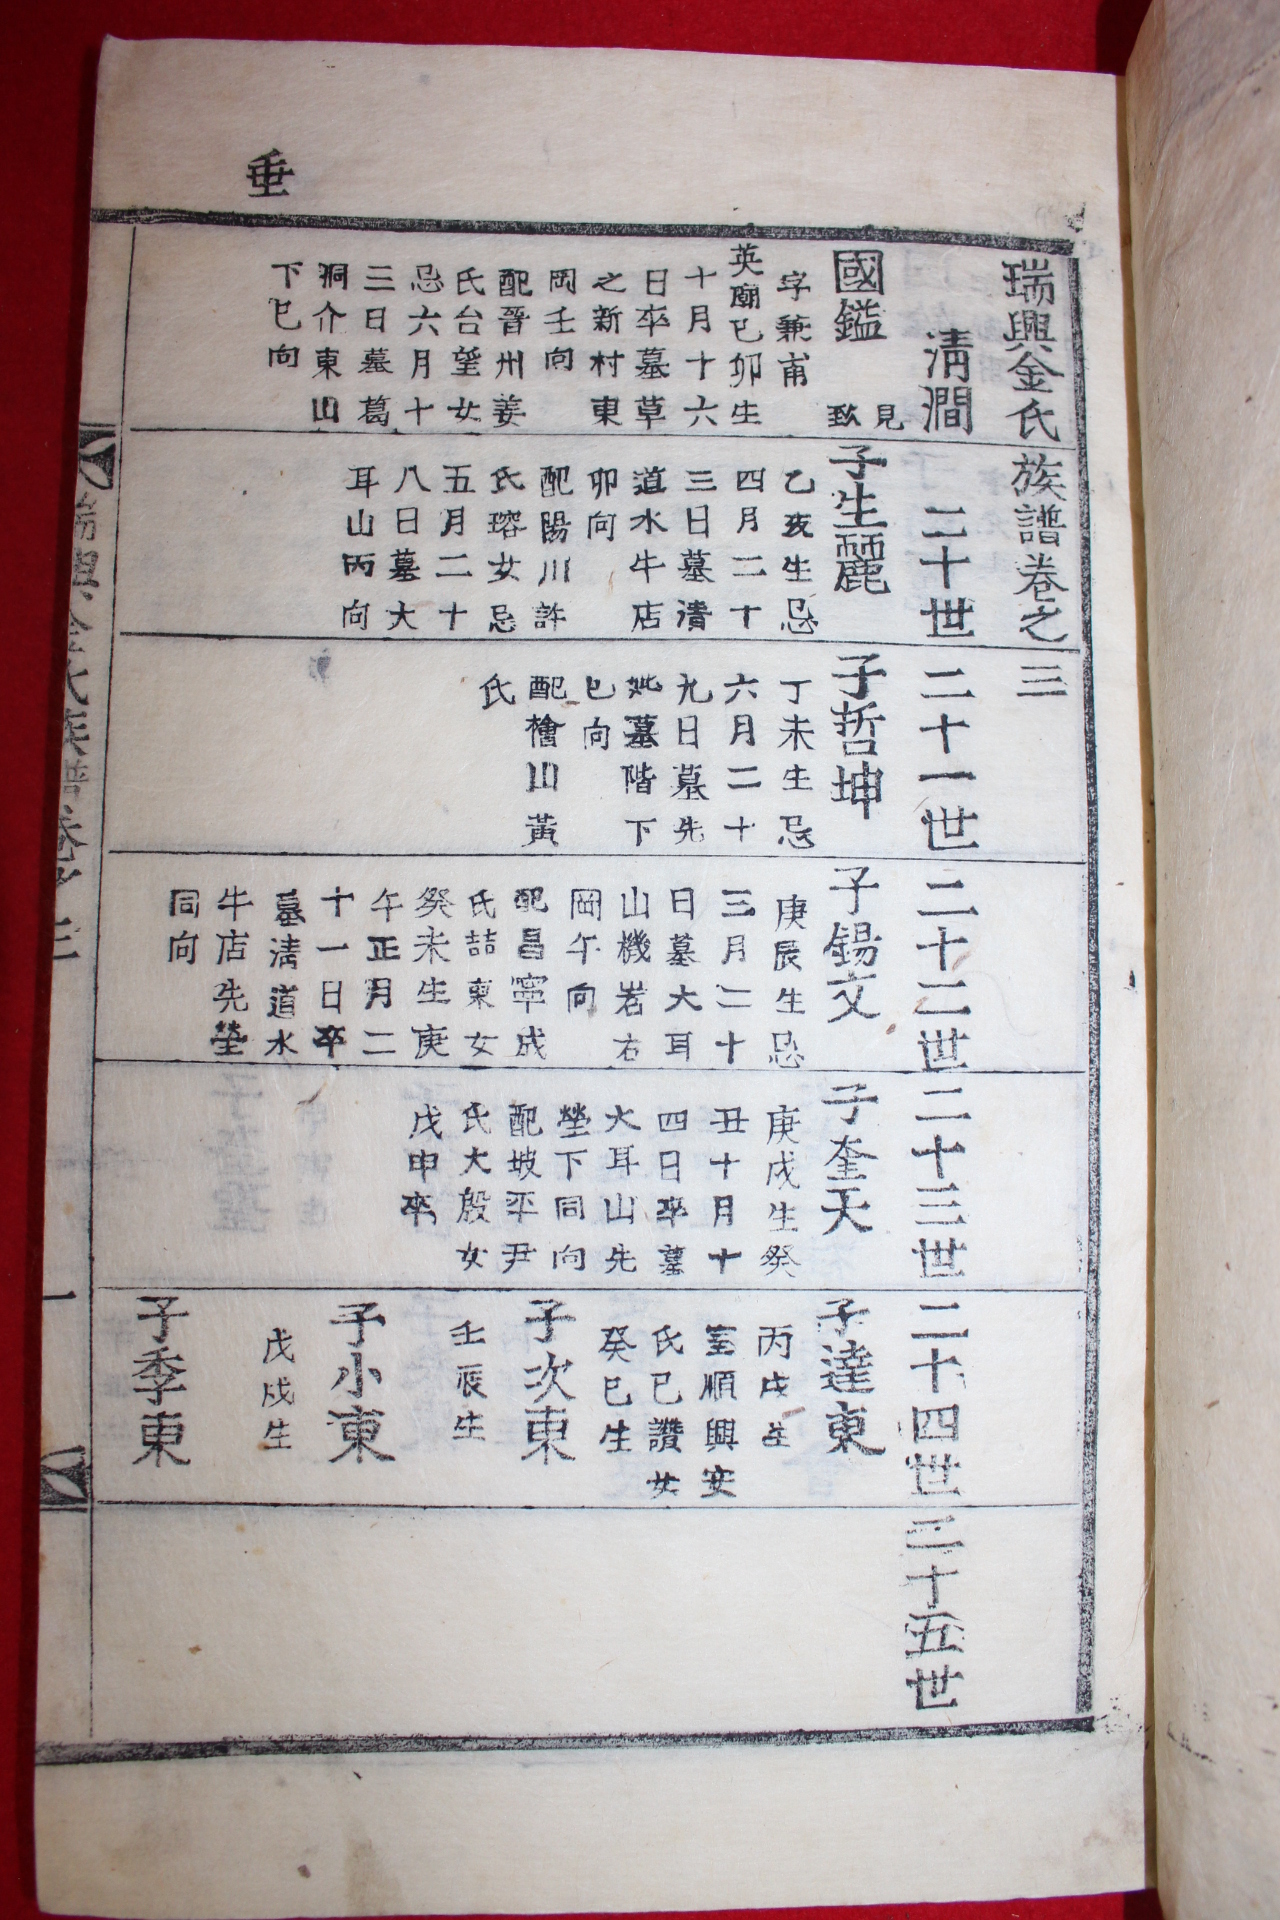 垂
瑞興金氏族譜卷之三
淸澗
二十世
二十一世
二十二世
二十三世
二十四世
二十五世
國鎰
見
致
字兼甫
英廟己卯生
十月十六
日卒墓草
之新村東
岡壬向
配晉州姜
氏台望女
忌六月十
三日墓葛
洞介東山
下巳向
子生麗
乙亥生忌
四月二十
三日墓淸
道水牛店
卯向
配陽川許
氏瑢女忌
五月二十
八日墓大
耳山丙向
子哲坤
丁未生忌
六月二十
九日墓先
妣墓階下
巳向
配檜山黃
氏
子錫文
庚辰生忌
三月二十
日墓大耳
山機岩右
岡午向
配昌寧成
氏喆東女
癸未生庚
午正月二
十一日卒
墓淸道水
牛店先塋
同向
子奎天
庚戌生癸
丑十月十
四日卒墓
大耳山先
塋下同向
配坡平尹
氏大殷女
戊申卒
子達東
丙戌生
室順興安
氏已讚女
癸巳生
子次東
壬辰生
子小東
戊戌生
子季東
瑞興金氏族譜卷之三
一